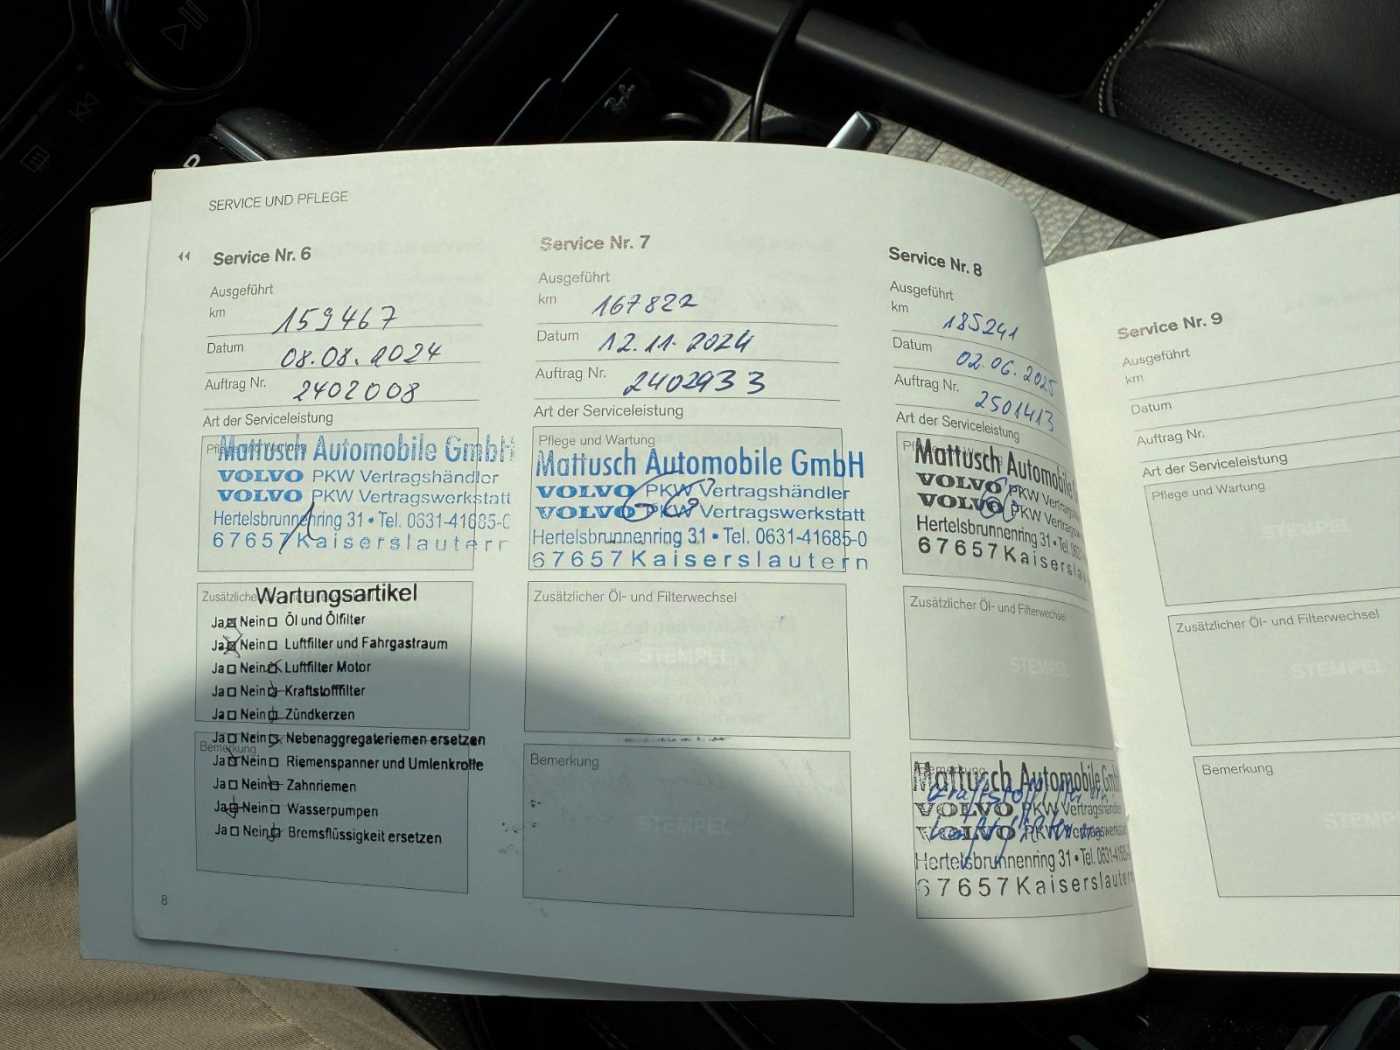 SERVICE UND PFLEGE
Service Nr. 6
Ausgeführt
km 159467
Datum 08.08.2024
Auftrag Nr. 2402008
Art der Serviceleistung
Pflege und Wartung
Mattusch Automobile GmbH
VOLVO PKW Vertragshändler
VOLVO PKW Vertragswerkstatt
Hertelsbrunnenring 31 • Tel. 0631-41685-0
67657 Kaiserslautern
Zusätzliche
Wartungsartikel
Ja Nein Öl und Ölfilter
Ja Nein Luftfilter und Fahrgastraum
Ja Nein Luftfilter Motor
Ja Nein Kraftstofffilter
Ja Nein Zündkerzen
Ja Nein Nebenaggregateriemen ersetzen
Bemerkung
Ja Nein Riemenspanner und Umlenkrolle
Ja Nein Zahnriemen
Ja Nein Wasserpumpen
Ja Nein Bremsflüssigkeit ersetzen
8
Service Nr. 7
Ausgeführt
km 167822
Datum 12.11.2024
Auftrag Nr. 2402933
Art der Serviceleistung
Pflege und Wartung
Mattusch Automobile GmbH
VOLVO PKW Vertragshändler
VOLVO PKW Vertragswerkstatt
Hertelsbrunnenring 31 • Tel. 0631-41685-0
67657 Kaiserslautern
Zusätzlicher Öl- und Filterwechsel
STEMPEL
Bemerkung
STEMPEL
Service Nr. 8
Ausgeführt
km 185241
Datum 02.06.2025
Auftrag Nr. 2501413
Art der Serviceleistung
Mattusch Automobile
VOLVO PKW Vertrags
VOLVO PKW Vertrags
Hertelsbrunnenring 31 • Tel. 063
67657 Kaiserslau
Zusätzlicher Öl- und Filterwechsel
STEMPEL
Bemerkung
Mattusch Automobile Gm
VOLVO PKW Vertragshändler
VOLVO PKW Vertragswerks
Hertelsbrunnenring 31 • Tel. 0631-4168
67657 Kaiserslautern
Service Nr. 9
Ausgeführt
km
Datum
Auftrag Nr.
Art der Serviceleistung
Pflege und Wartung
STEMPEL
Zusätzlicher Öl- und Filterwechsel
STEMPEL
Bemerkung
STEMPE